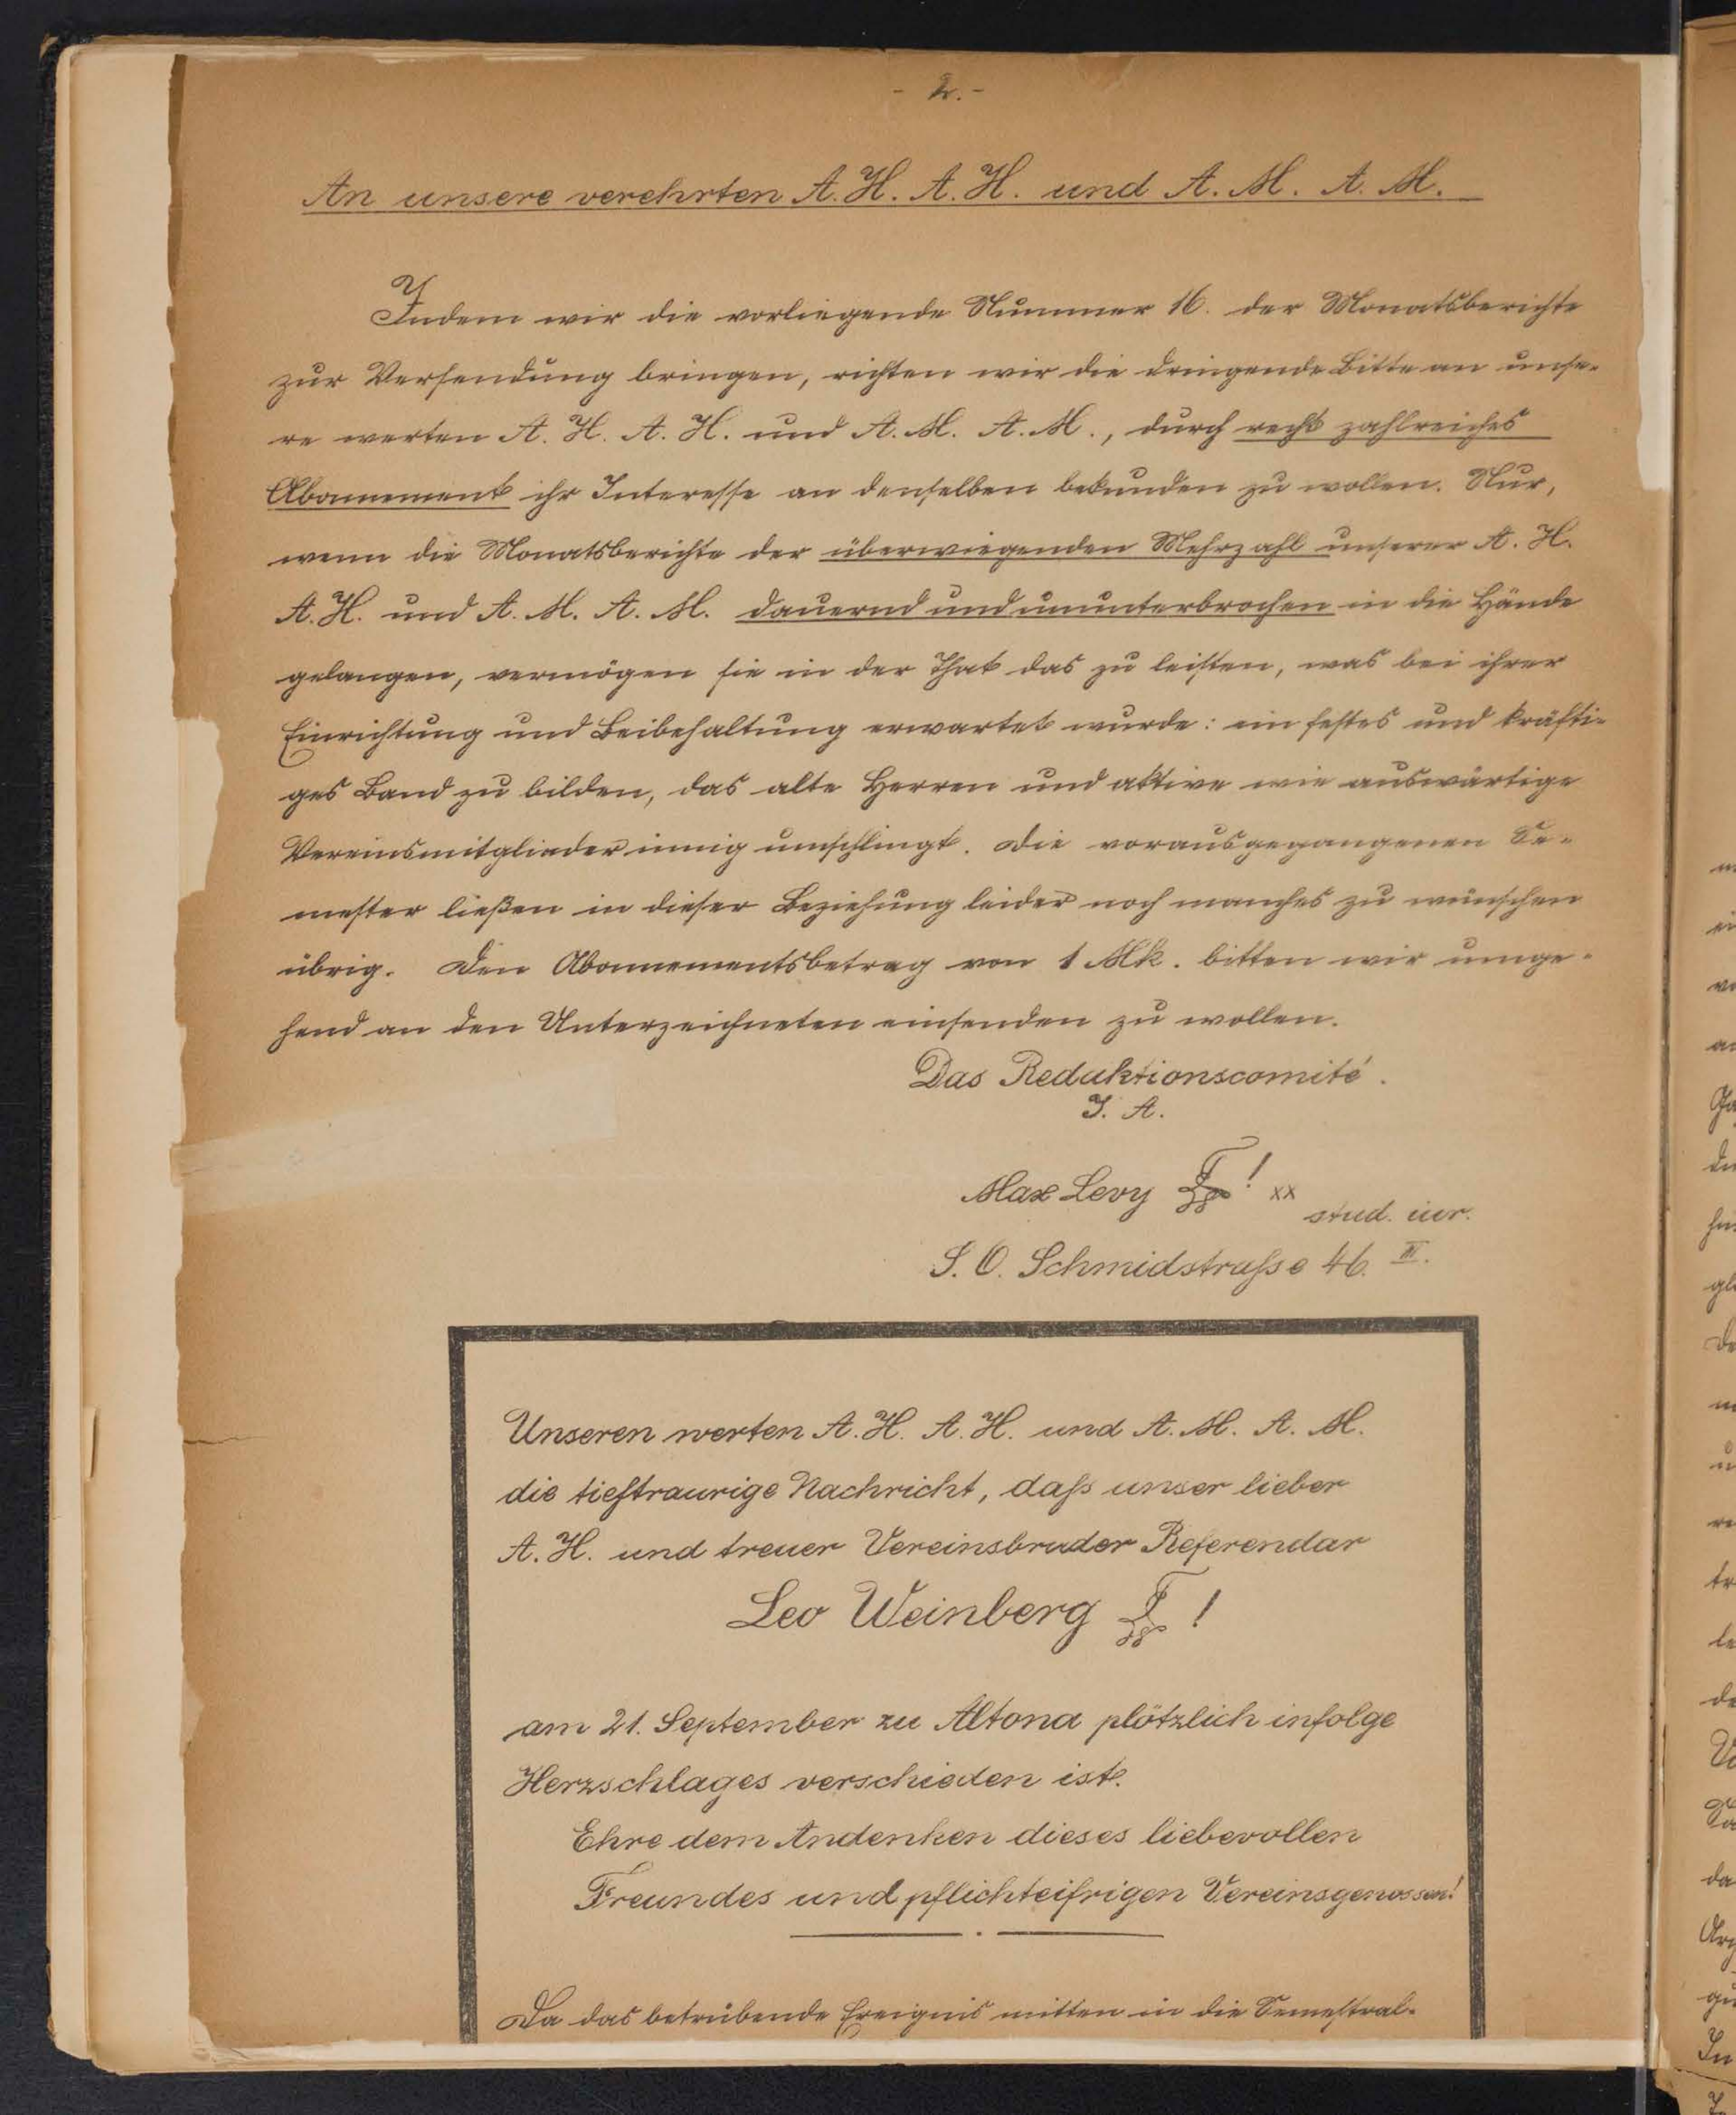 - 2. -
An unsere verehrten A. H. A. H. und A. M. A. M.
Indem wir die vorliegende Nummer 16. der Monatsberichte
zur Versendung bringen, richten wir die dringende Bitte an unse-
re werten A. H. A. H. und A. M. A. M., durch recht zahlreiches
Abonnement ihr Interesse an denselben bekunden zu wollen. Nur,
wenn die Monatsberichte der überwiegenden Mehrzahl unserer A. H.
A. H. und A. M. A. M. dauernd und ununterbrochen in die Hände
gelangen, vermögen sie in der That das zu leisten, was bei ihrer
Einrichtung und Beibehaltung erwartet wurde: ein festes und kräfti-
ges Band zu bilden, das alte Herren und aktive wie auswärtige
Vereinsmitglieder innig umschlingt. Die vorausgegangenen Se-
mester ließen in dieser Beziehung leider noch manches zu wünschen
übrig. Den Abonnementsbetrag von 1 Mk. bitten wir umge-
hend an den Unterzeichneten einsenden zu wollen.
Das Redaktionscomité.
I. A.
Max Levy ! xx
stud. iur.
S. O. Schmidstraße 46. III.
Unseren werten A. H. A. H. und A. M. A. M.
die tieftraurige Nachricht, daß unser lieber
A. H. und treuer Vereinsbruder Referendar
Leo Weinberg !
am 21. September zu Altona plötzlich infolge
Herzschlages verschieden ist.
Ehre dem Andenken dieses liebevollen
Freundes und pflichteifrigen Vereinsgenossen!
Da das betrübende Ereignis mitten in die Semestral-